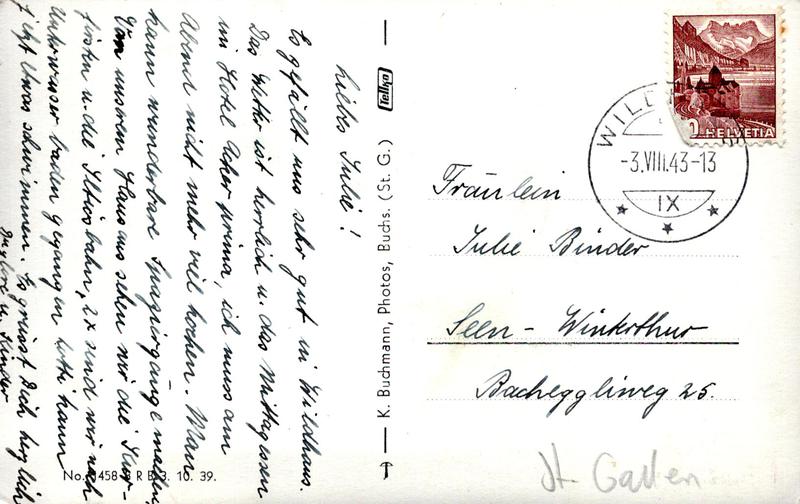 Liebes Julie!
Es gefällt uns sehr gut in Wildhaus.
Das Wetter ist herrlich u. das Mittagessen
im Hotel Acker prima, ich muss am
Abend nicht mehr viel kochen. Man
kann wunderbare Spaziergänge machen.
Von unserem Haus aus sehen wir die Chur-
firsten u. die Iltiosbahn, 2x sind wir nach
Unterwasser baden gegangen Lotti kann
jetzt etwas schwimmen. Es grüsst Dich herzlich
u. Kinder
No. 3458 B R B 3. 10. 39.
K. Buchmann, Photos, Buchs. (St. G.)
Telka
HELVETIA
WILD
-3.VIII.43-13
IX
Fräulein
Julie Binder
Seen - Winterthur
Bacheggliweg 25.
St. Gallen